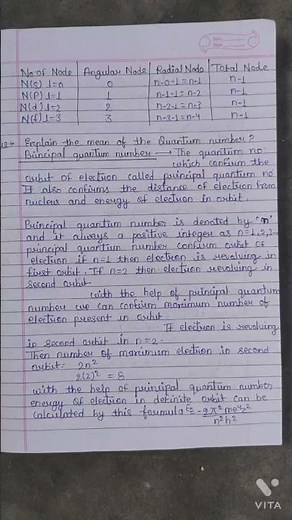 No of Node Angular Node Radial Node Total Node
N(s) l=0 0 n-0-1=n-1 n-1
N(P) l=1 1 n-1-1=n-2 n-1
N(d) l=2 2 n-2-1=n-3 n-1
N(f) l=3 3 n-3-1=n-4 n-1
Explain the mean of the Quantum number?
Principal quantum number → The quantum no.
which confirm the
orbit of electron called principal quantum no
It also confirms the distance of electron from
nucleus and energy of electron in orbit.
Principal quantum number is denoted by "n"
and it always a positive integer as n=1,2,3-
principal quantum number confirm orbit of
electron if n=1 then electron is revolving in
first orbit. If n=2 then electron revolving in
second orbit
with the help of principal quantum
number we can confirm maximum number of
electron present in orbit
If electron is revolving
in second orbit in n=2.
Then number of maximum electron in second
orbit= 2n²
2(2)² = 8
with the help of principal quantum number
energy of electron in definite orbit can be
calculated by this formula E= -2π²me⁴z²
n²h²
VITA